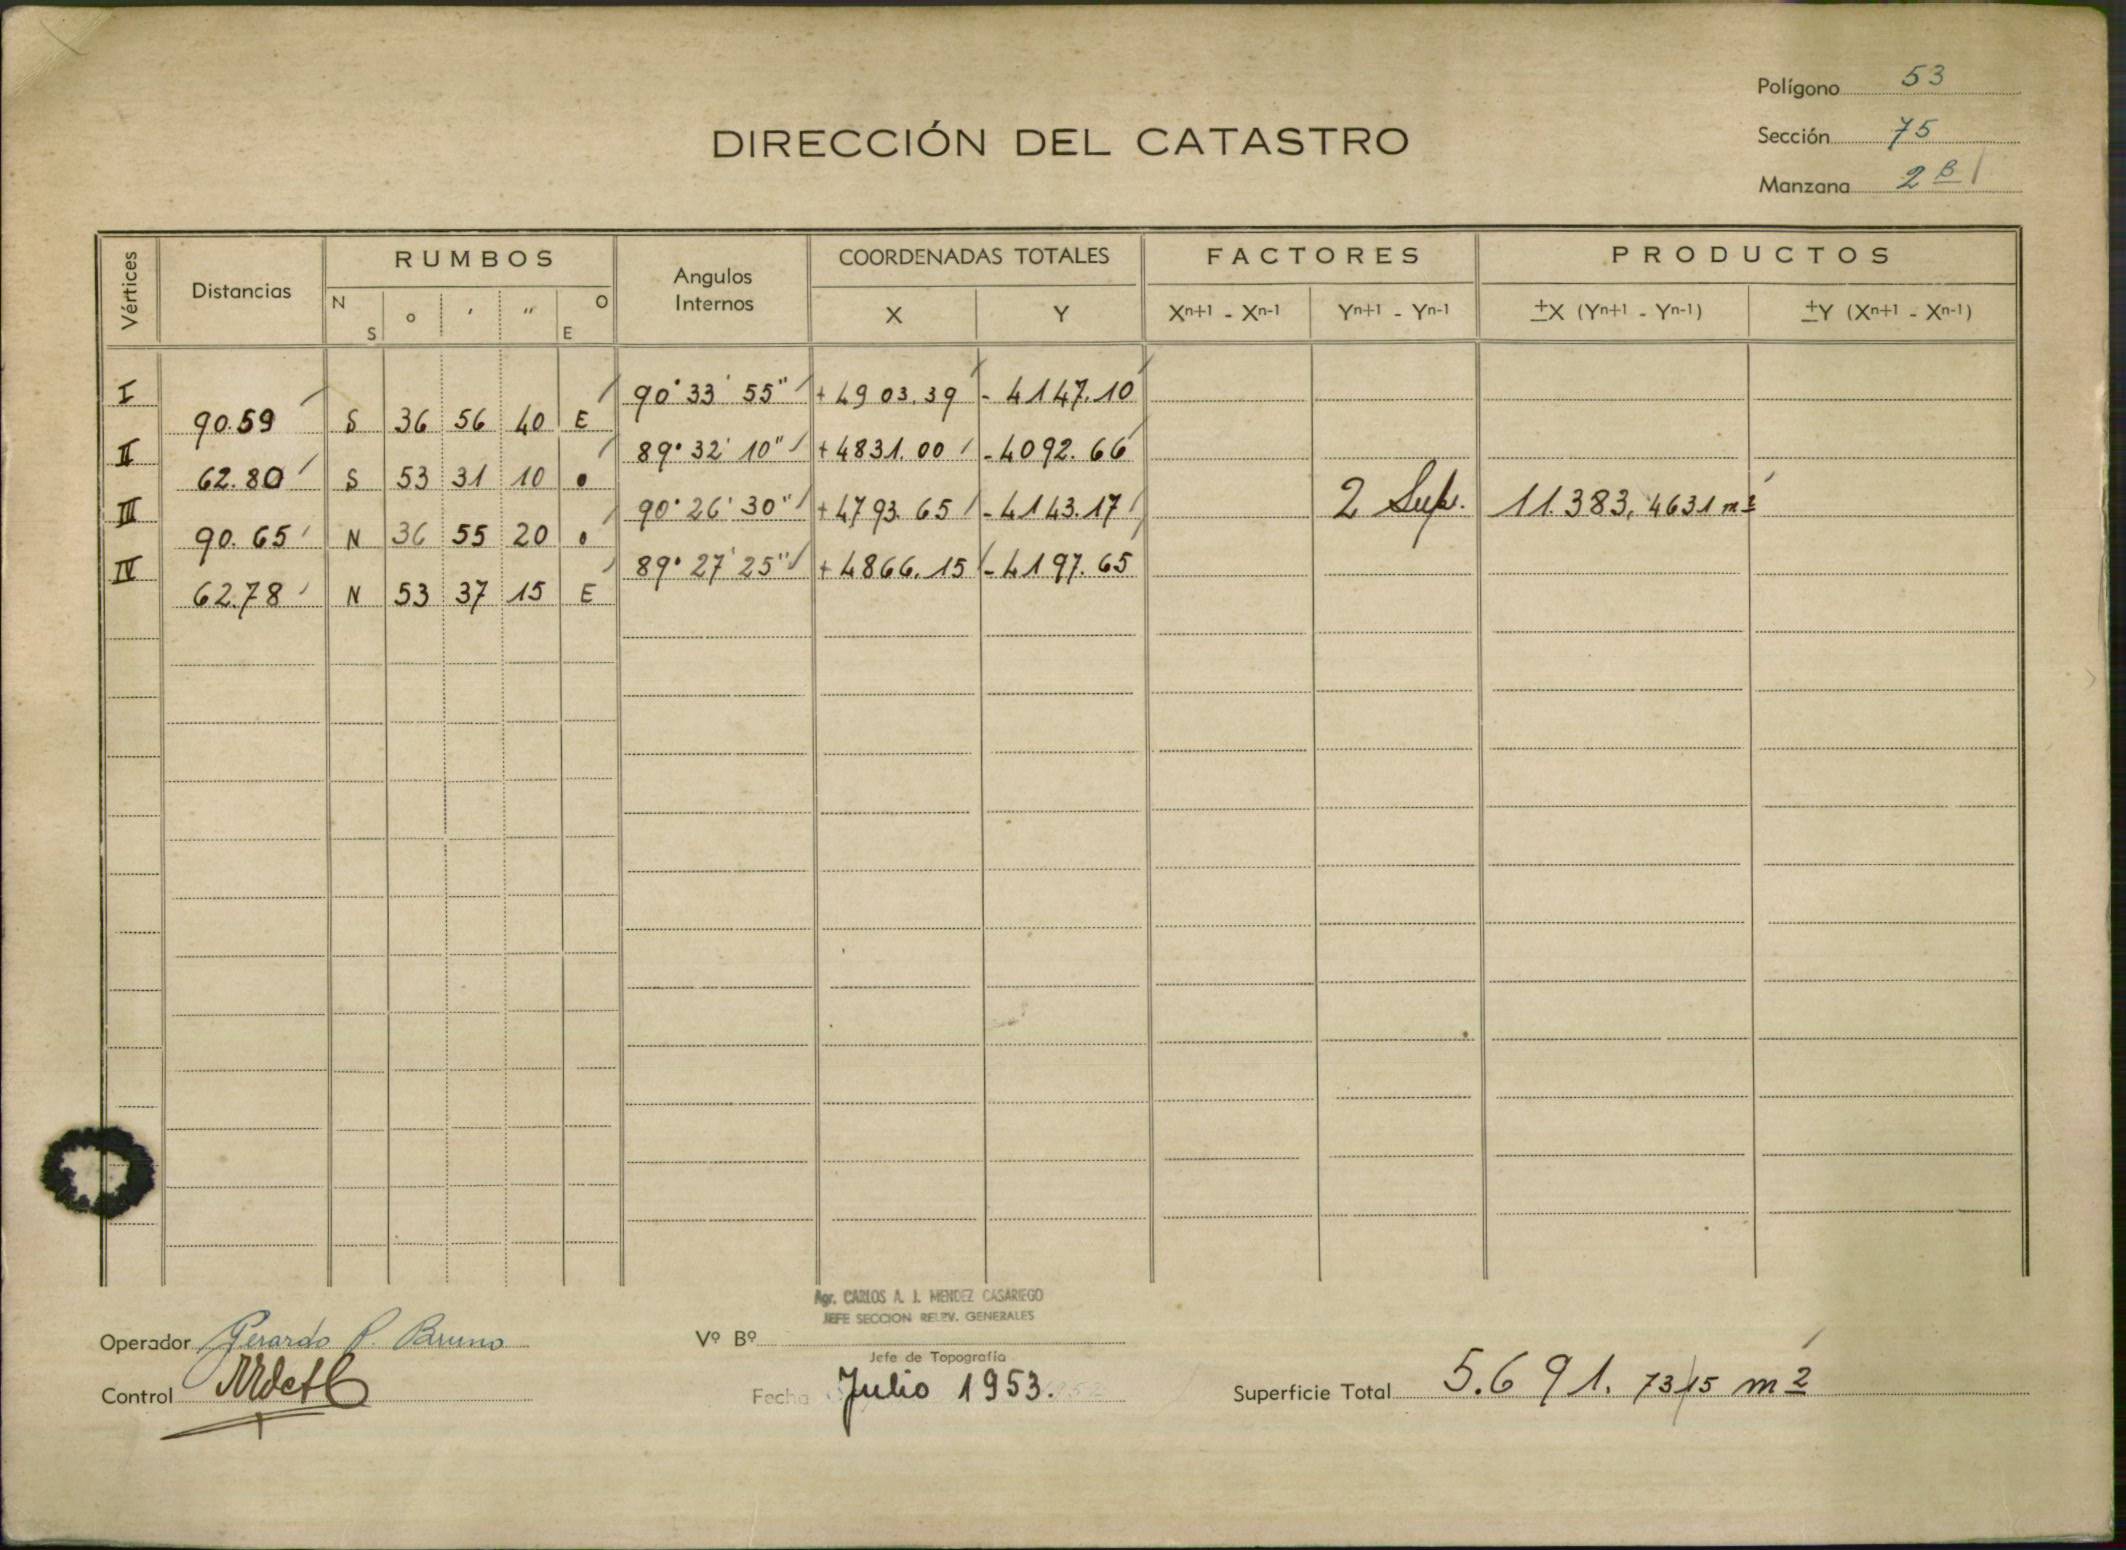 Polígono 53
DIRECCIÓN DEL CATASTRO
Sección 75
Manzana 2 B
Vértices Distancias RUMBOS Angulos Internos COORDENADAS TOTALES FACTORES PRODUCTOS
N S o ' " O E X Y Xn+1 - Xn-1 Yn+1 - Yn-1 ±X (Yn+1 - Yn-1) ±Y (Xn+1 - Xn-1)
I 90°33'55" +4903.39 -4147.10
90.59 S 36 56 40 E
II 89°32'10" +4831.00 -4092.66
62.80 S 53 31 10 o
III 90°26'30" +4793.65 -4143.17 2 Sup. 11.383,4631 m2
90.65 N 36 55 20 o
IV 89°27'25" +4866.15 -4197.65
62.78 N 53 37 15 E
Agr. CARLOS A. J. MENDEZ CASARIEGO
JEFE SECCION RELEV. GENERALES
Operador Gerardo P. Bruno Vº Bº
Jefe de Topografía
Control Fecha Julio 1953. Superficie Total 5.691.7315 m2